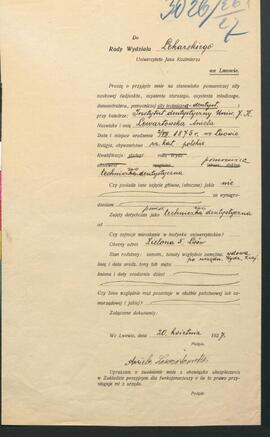 3026/
27
Do
Rady Wydziału Lekarskiego
Uniwersytetu Jana Kazimierza
we Lwowie.
Proszę o przyjęcie mnie na stanowisko pomocniczej siły
naukowej (adjunkta, asystenta starszego, asystenta młodszego,
demonstratora, pomocniczej siły technicznej dentyst.)
przy katedrze: Instytut dentystyczny Uniw. J. K.
Nazwisko i imię Lewartowska Aniela
Data i miejsce urodzenia 1875 r. we Lwowie
Religja, obywatelstwo rz. kat. polskie
Kwalifikacje
techniczka dentystyczna
Czy posiada inne zajęcie główne, (uboczne) jako nie
za wynagro-
dzeniem
Zajęty dotychczas jako techniczka dentystyczna
od
Czy zajmuje mieszkanie w budynku uniwersyteckim?
Obecny adres Zielona 5. Lwów
Stan rodzinny: samotny, żonaty względnie zamężna, wdowa
Imię i data urodz. żony lub męża
Imiona i daty urodzenia dzieci
Czy żona względnie mąż pozostaje w służbie państwowej lub sa-
morządowej i jakiej?
Załączone dokumenty:
We Lwowie, dnia 20. kwietnia 1927.
Aniela Lewartowska
Podpis:
Upraszam o zwolnienie mnie z obowiązku ubezpieczenia
w Zakładzie pensyjnym dla funkcjonarjuszy o ile to prawo przysłu-
guje mi z urzędu.
Podpis: